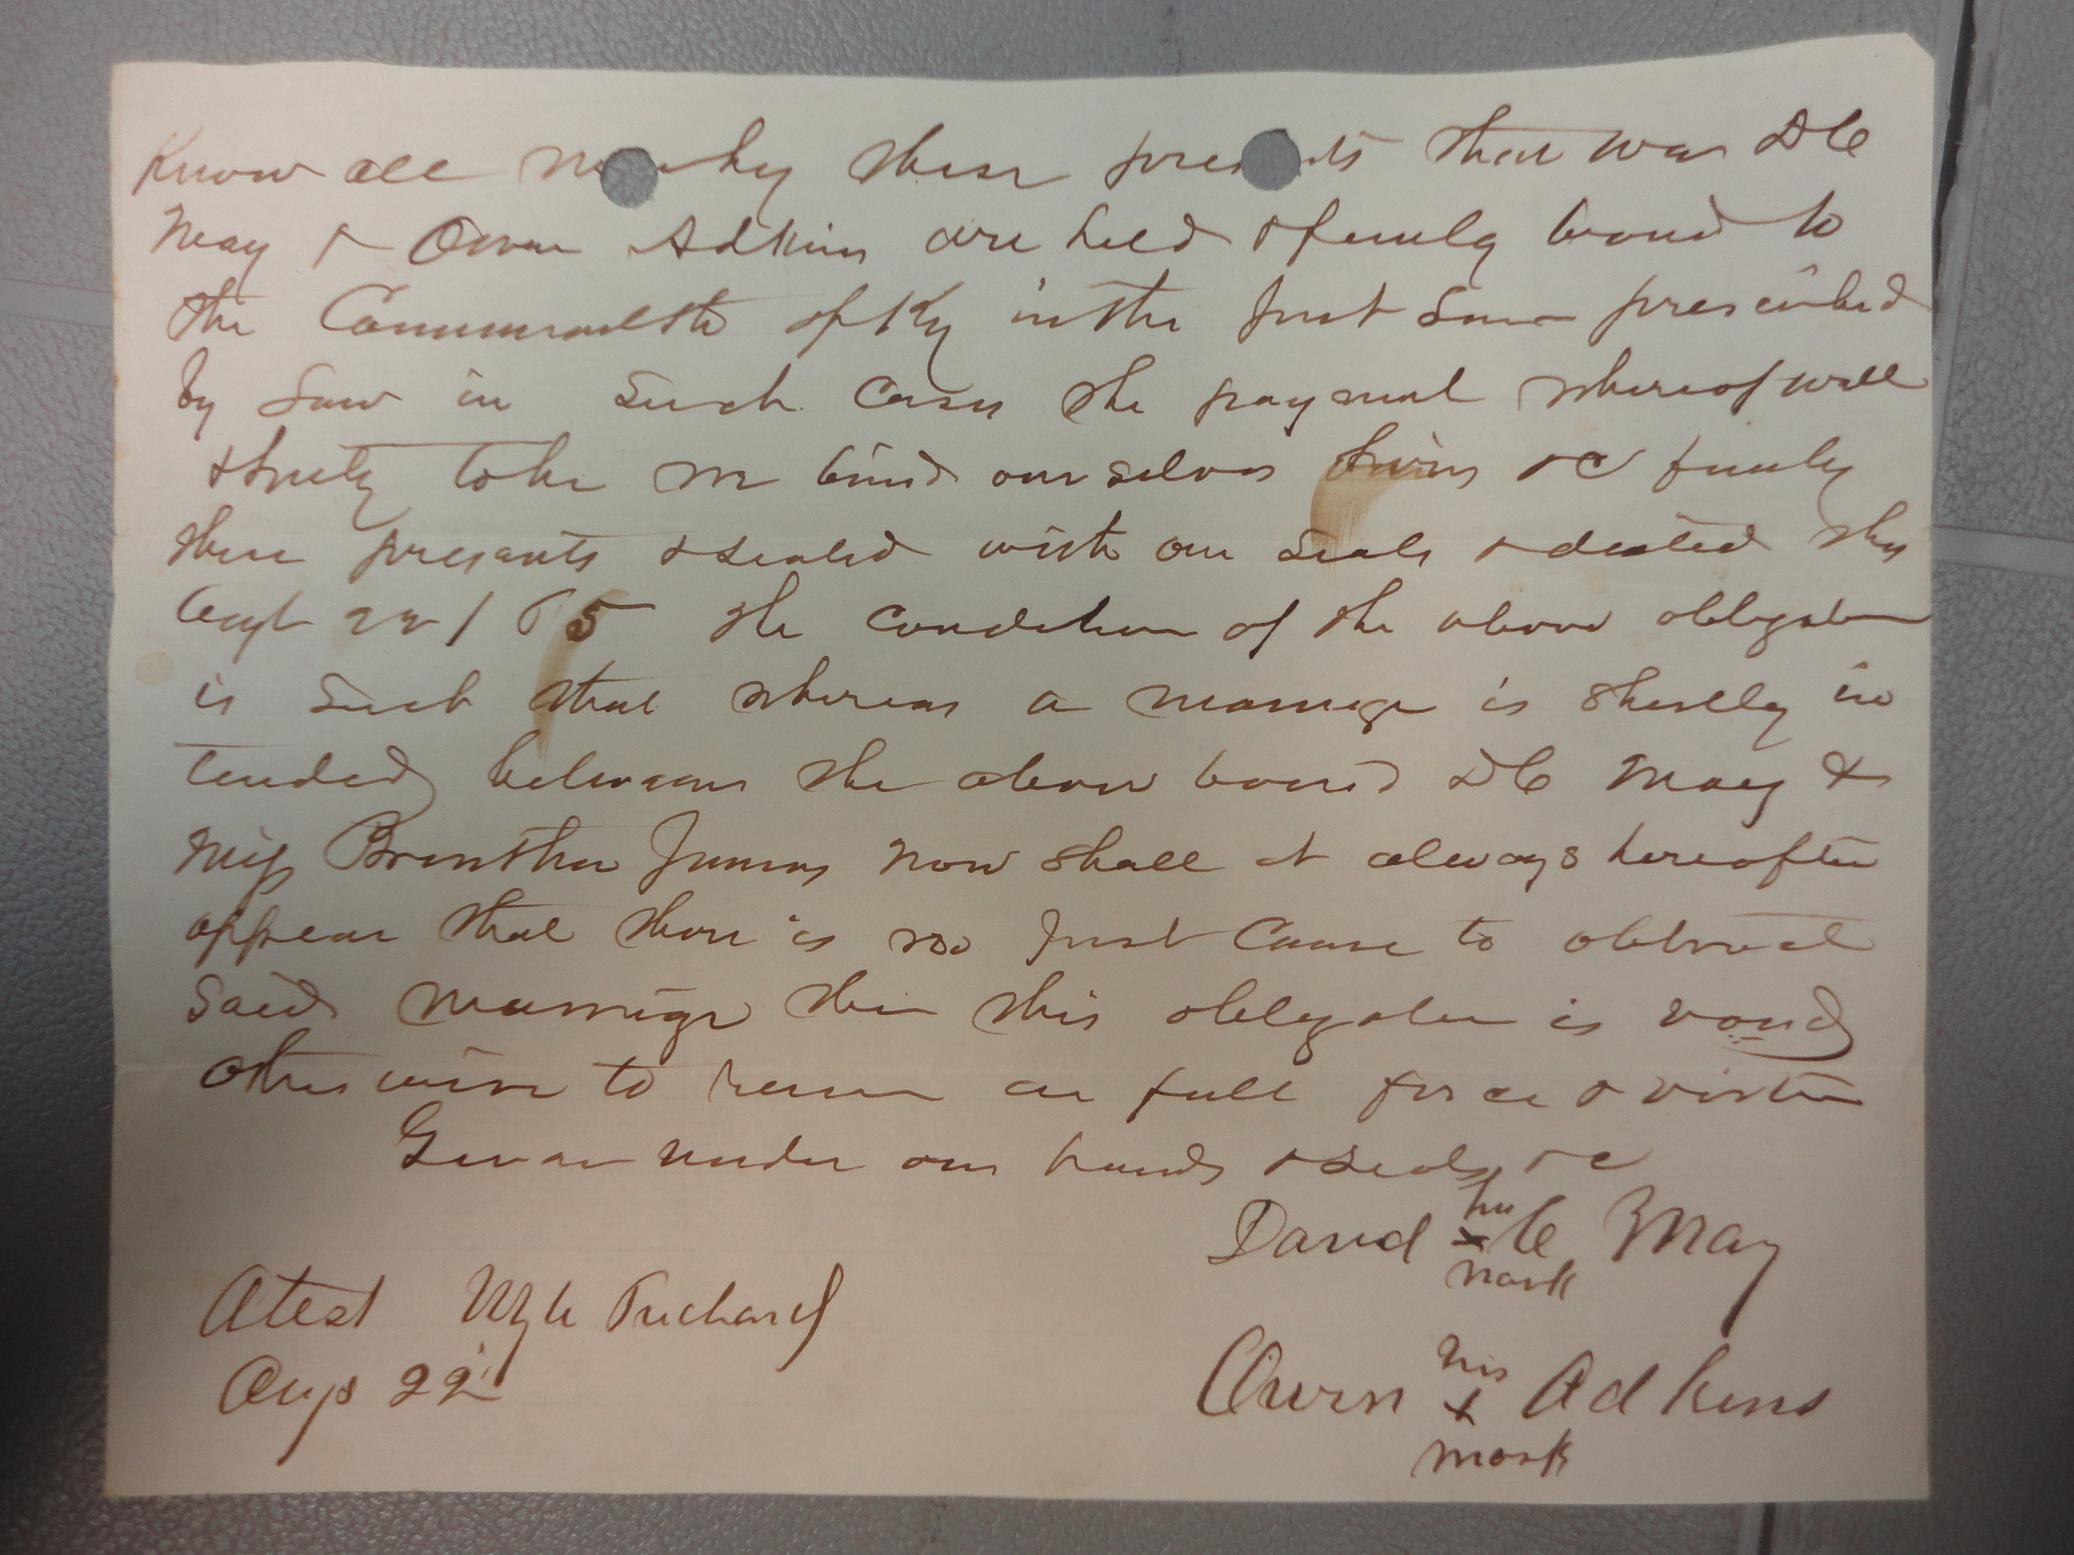 Know all by these presents that we D C
May & Owen Adkins are held & firmly bound to
the Commonwealth of Ky in the Just Sum prescribed
by Law in Such Cases the payment whereof well
& truly to be we bind ourselves heirs &C firmly
these presents & sealed with our Seals & dated this
Augt 22 / 65 The Condition of the above obligation
is Such that whereas a marriage is Shortly in
tended between the above bound D C May &
Miss now shall it always hereafter
appear that there is no Just Cause to obstruct
Said marriage then this obligation is void
otherwise to remain in full force & virtue
Given under our hands & Seals &C
David his x C May
mark
Atest Prichard
Aug 22
Owen his x Adkins
mark